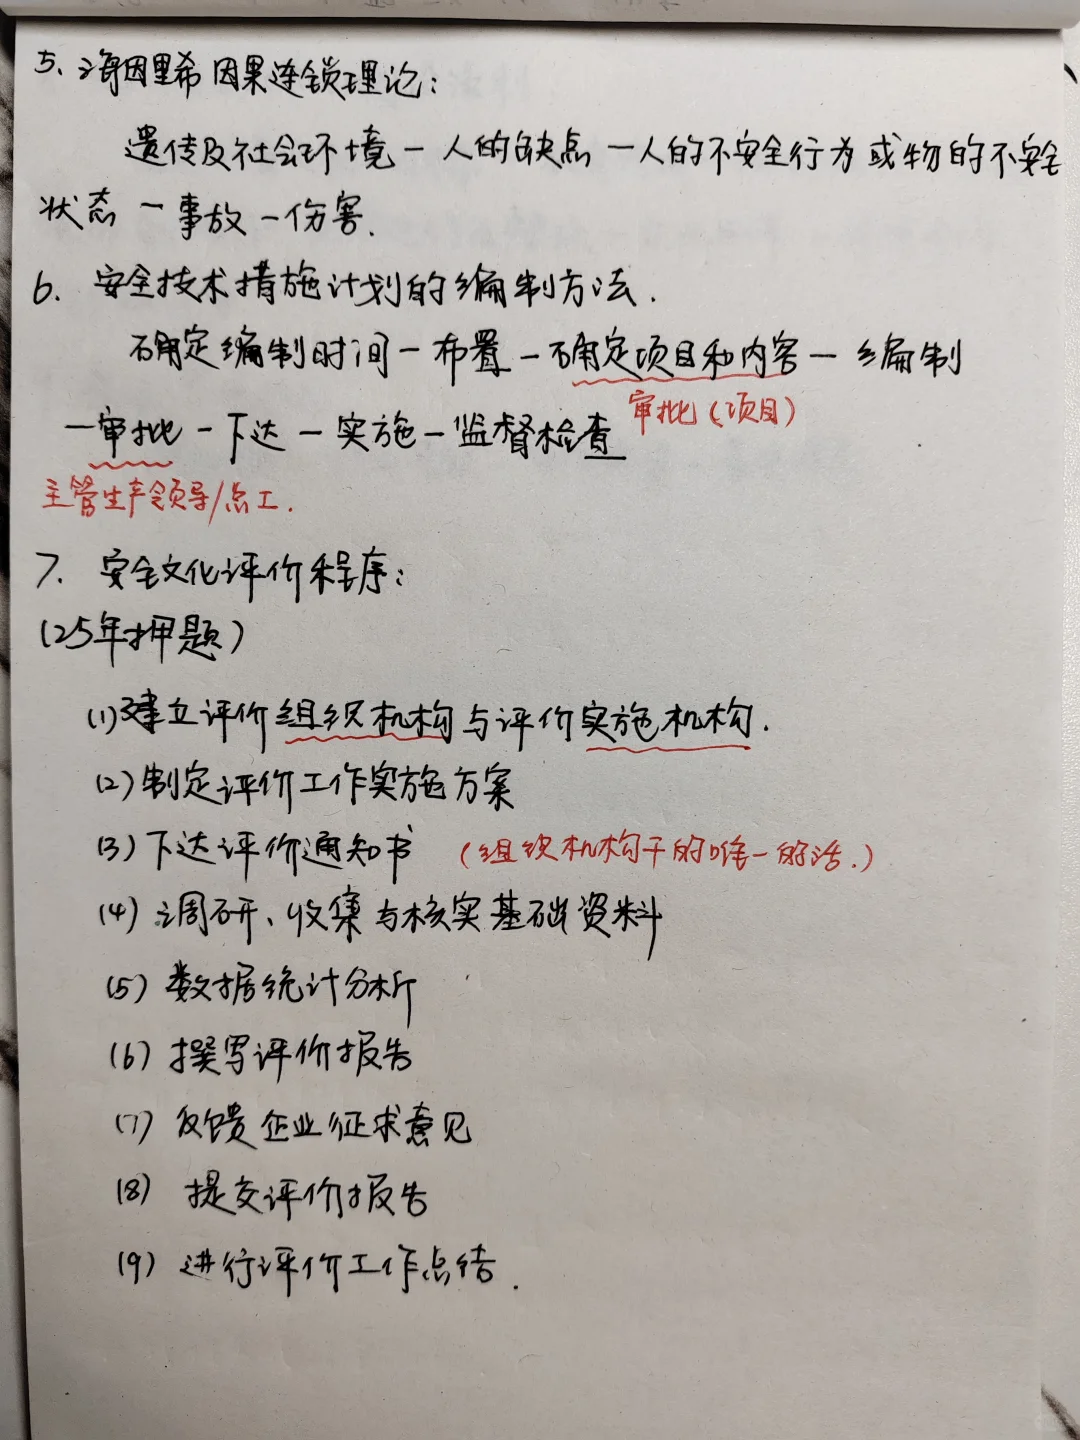 5、海因里希因果连锁理论：
遗传及社会环境－人的缺点－人的不安全行为或物的不安全
状态－事故－伤害.
6. 安全技术措施计划的编制方法.
确定编制时间－布置－确定项目和内容－编制
审批（项目）
－审批－下达－实施－监督检查
主管生产领导/总工.
7. 安全文化评价程序：
（25年押题）
(1)建立评价组织机构与评价实施机构.
(2)制定评价工作实施方案
(3)下达评价通知书 （组织机构干的唯一的活.）
(4)调研、收集与核实基础资料
(5)数据统计分析
(6)撰写评价报告
(7)反馈企业征求意见
(8)提交评价报告
(9)进行评价工作总结.